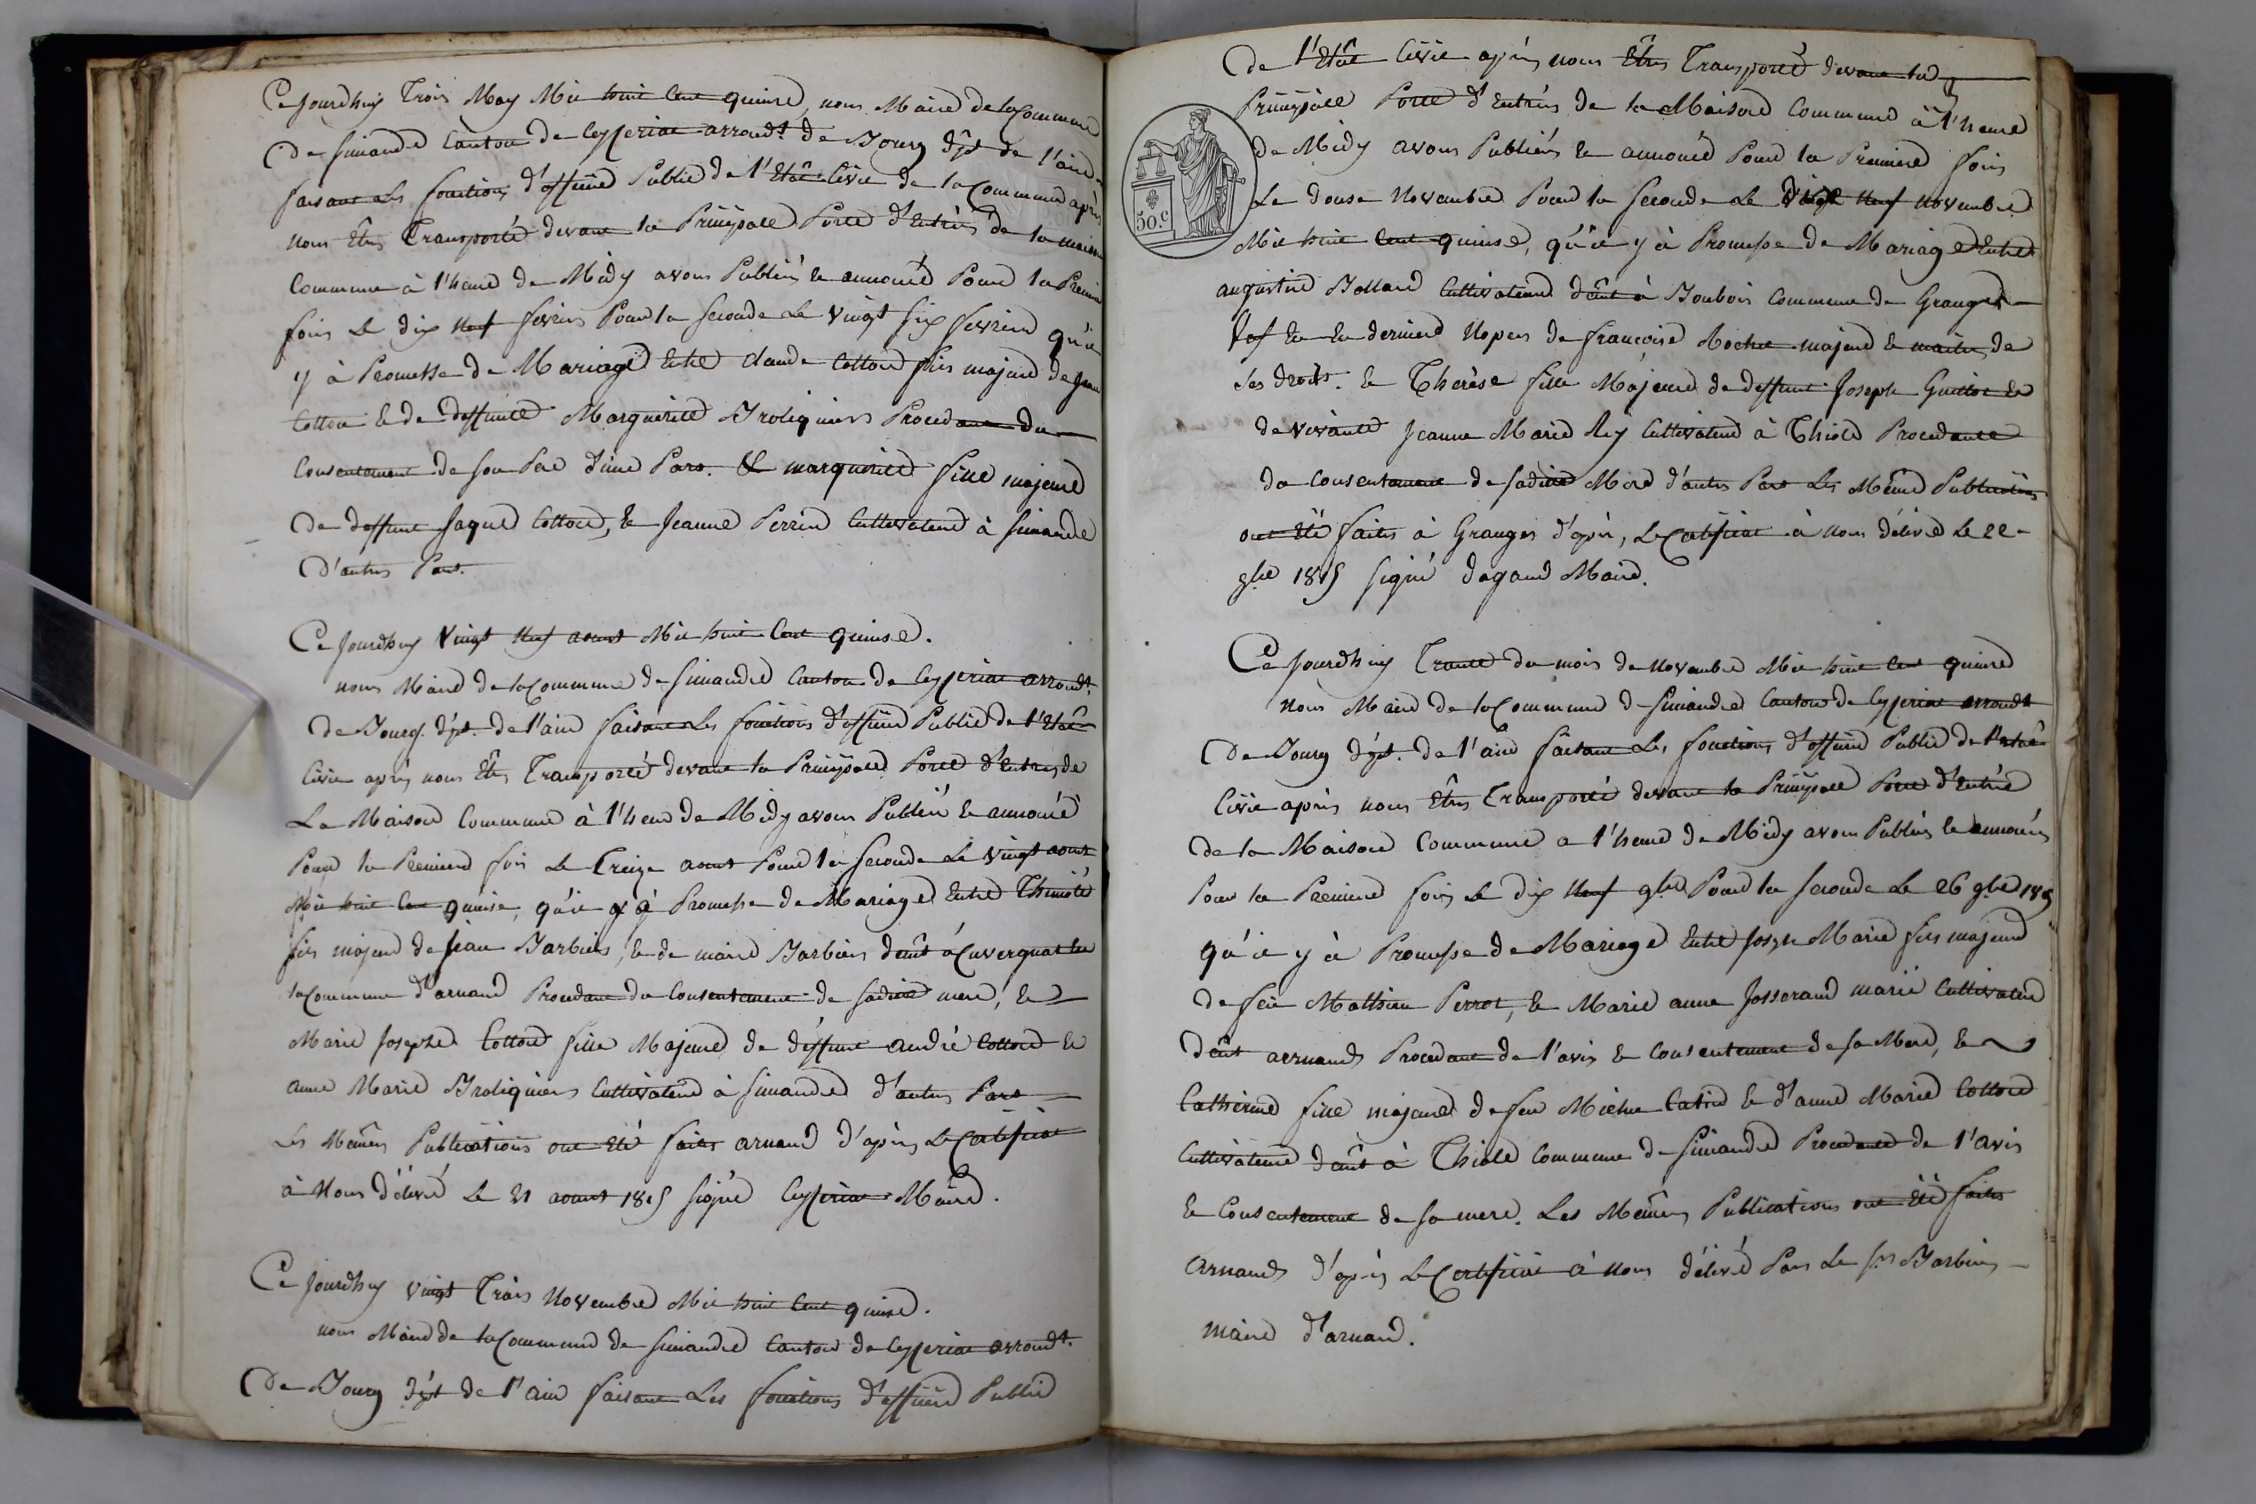 Ce jourdhuy Trois May Mil huit Cent quinze, nous Maire de la Commune
De Simandre Canton de Ceyzeriat arrondt. de Bourg dpt de l'ain
faisant les fonctions d'officier Public de l'Etat Civil de la Commune après
nous être Transporté devant la Principalle Porte d'Entrés de la maison
Commune à l'heure de Midy avons Publiér & annoncé Pour la Premiere
fois Le dix neuf fevrier Pour la seconde Le vingt six fevrier qu'il
y à Promesse de Mariage Entre Claude Cotton fils majeur de Jean
Cotton & de deffuncte Marguerite Broliquiers Procedant du
Consentement de son Pere d'une Part. Et marguerite fille majeure
De deffunt Jaque Cotton, & Jeanne Perrin Cultivateur à Simandre
D'autres Part.
Ce jourdhuy Vingt neuf aoust Mil huit Cent quinse.
nous Maire de la Commune de Simandre Canton de Ceyzeriat arrondt.
De Bourg. dpt. de l'ain faisant Les fonctions d'officier Public de l'Etat
Civil après nous être Transporté devant la Principalle Porte d'Entrés de
La Maison Commune à l'heure de Midy avons Publiér & annoncé
Pour la Premiere fois Le Treize aout Pour la seconde Le vingt aout
Mil huit Cent quinse, qu'il y à Promesse de Mariage Entre Thimoté
fils majeur de Jean Barbier, & de marie Barbier dmt à Cuvergnat
la Commune d'arnand Procedant du Consentement de sadite mere, &
Marie Josephe Cotton fille Majeure de deffunt andré Cotton &
anne Marie Broliquiers Cultivateur à Simandre d'autres Part
Les Mêmes Publications ont Eté faites arnand d'après Le Certificat
à Nous délivré Le 21 aoust 1815 signé Ceyzeriat Maire.
Ce jourdhuy vingt Trois Novembre Mil huit Cent quinse.
nous Maire de la Commune de Simandre Canton de Ceyzeriat arrondt.
De Bourg dpt de l'ain faisant Les fonctions d'officier Public
De l'Etat Civil après nous Etres Transporté devant la
Principalle Porte d'Entrés de la Maison Commune à l'heure
50.c
De Midy avons Publiér & annoncé Pour la Premiere fois
Le douse Novembre Pour la seconde Le Vingt neuf Novembre
Mil huit Cent quinse, qu'il y à Promesse de Mariage Entre
augustin Bolland Cultivateur dmt à Bonbois Commune de Granges
Veuf En derniere Nopces de francoise majeur & maitre de
ses droits. & Therèse fille Majeure de deffunt Joseph Guillot &
de vivante Jeanne Marie Rey Cultivateur à Thiole Procedante
du Consentement de sadite Mere d'autres Part Les Mêmes Publications
ont Eté faites à Granges d'après, Le Certificat à nous délivré Le 22
9bre 1815 signé dagand Maire.
Ce jourdhuy Trante du mois de Novembre Mil huit Cent quinse
nous Maire de la Commune de Simandre Canton de Ceyzeriat arrondt
De Bourg dpt. de l'ain faisant Les fonctions d'officier Public de l'etat
Civil après nous Etres Transporté devant la Principalle Porte d'Entrés
de la Maison Commune a l'heure de Midy avons Publiér & annoncér
Pour la Premiere fois Le dix neuf 9bre Pour la seconde Le 26 9bre 1815
qu'il y à Promesse de Mariage Entre Joseph Marie fils majeur
de feu Mathieu Perrot, & Marie anne Josserand marié Cultivateur
dmt arnand Procedant de l'avis & Consentement de sa Mere, &
Catherine fille majeure de feu Michel Catin & d'anne Marie Cotton
Cultivateur dmt à Thiole Commune de Simandre Procedante de l'avis
& Consentement de sa mere. Les Mêmes Publications ont Eté faites
Arnand d'après Le Certificat à nous délivré Par Le sr Barbier
Maire d'arnand.